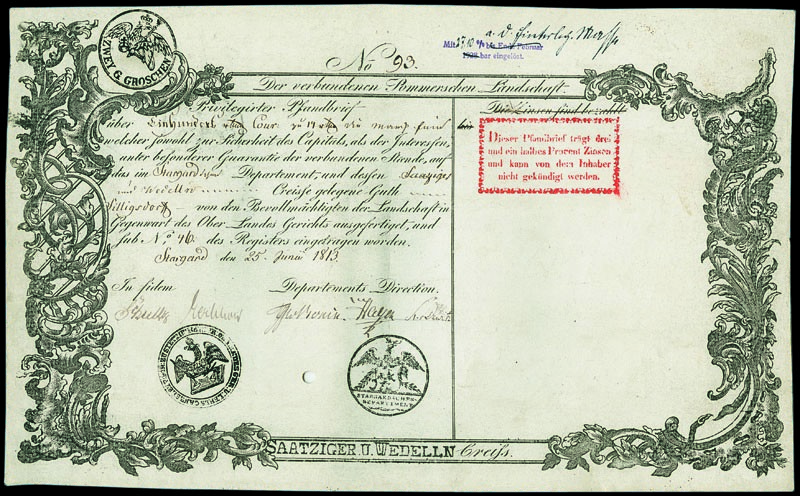 ZWEY G. GROSCHEN
a. d. Hinterleg. Masse
Mit 27,10 % bis Ende Februar
bar eingelöst.
No 93.
Der verbundenen Pommerschen Landschaft
Privilegirter Pfandbrief
über Einhundert
welcher sowohl zur Sicherheit des Capitals, als der Interessen,
unter besonderer Guarantie der verbundenen Stände, auf
das im Stargardtschen Departement, und dessen Saatziger
und Wedelln Creisse gelegene Guth
von den Bevollmächtigten der Landschaft in
Gegenwart des Ober Landes Gerichts ausgefertigt, und
sub No. 46. des Registers eingetragen worden.
Stargard den 25 Juni 1813.
In fidem
Departements Direction.
Die Zinsen sind bezahlt
bis
Dieser Pfandbrief trägt drei
und ein halbes Procent Zinsen
und kann von dem Inhaber
nicht gekündigt werden.
STARGARDSCHES
DEPARTEMENT
SAATZIGER U. WEDELLN Creiss.